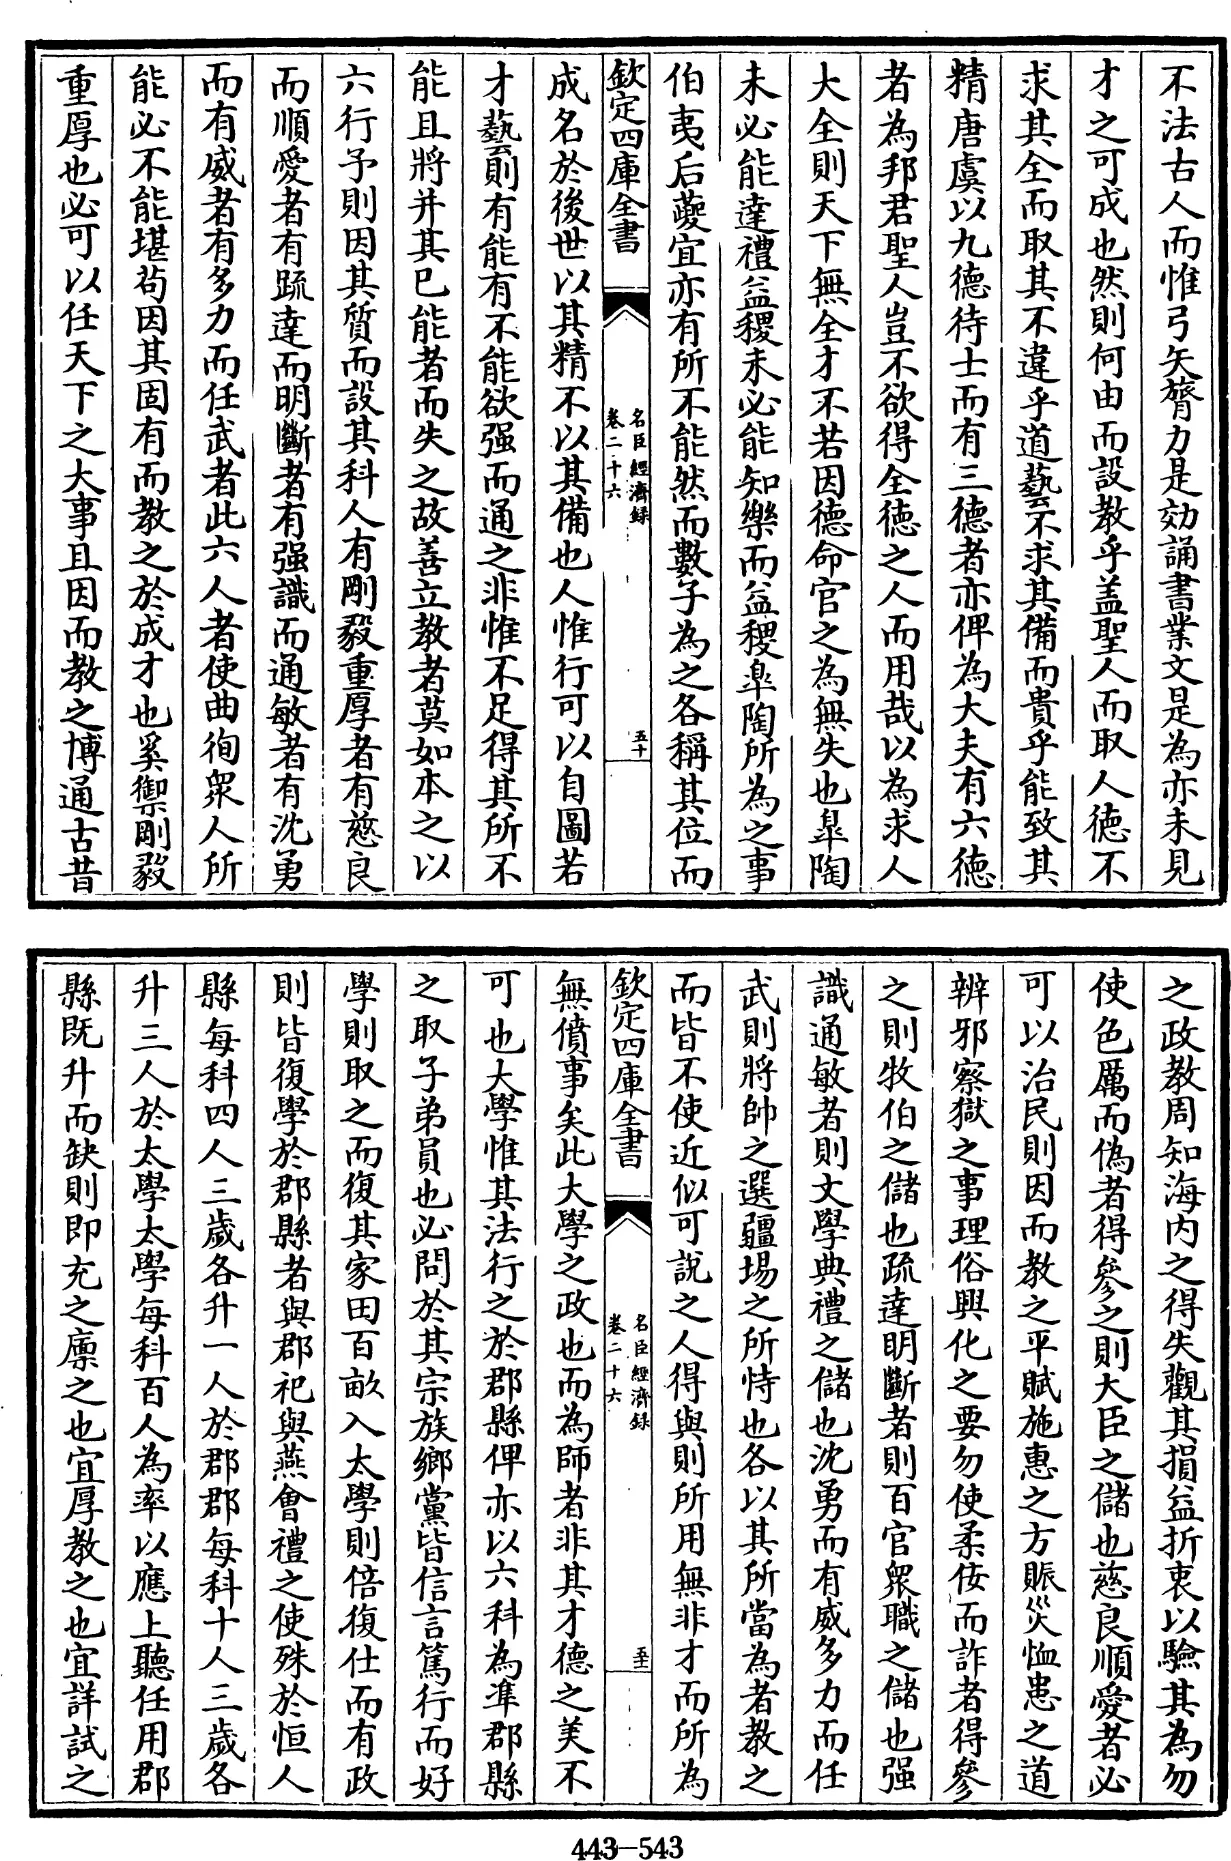 不法古人而惟弓矢膂力是効誦書業文是為亦未見
才之可成也然則何由而設教乎盖聖人而取人徳不
求其全而取其不違乎道藝不求其備而貴乎能致其
精唐虞以九徳待士而有三徳者亦俾為大夫有六徳
者為邦君聖人豈不欲得全徳之人而用哉以為求人
大全則天下無全才不若因徳命官之為無失也臯陶
未必能達禮益稷未必能知樂而益稷臯陶所為之事
伯夷后夔宜亦有所不能然而數子為之各稱其位而
欽定四庫全書
名臣經濟録
卷二十六
五十
成名於後世以其精不以其備也人惟行可以自圖若
才藝則有能有不能欲强而通之非惟不足得其所不
能且將并其已能者而失之故善立教者莫如本之以
六行予則因其質而設其科人有剛毅重厚者有慈良
而順愛者有䟽達而明斷者有强識而通敏者有沈勇
而有威者有多力而任武者此六人者使曲徇衆人所
能必不能堪茍因其固有而教之於成才也奚禦剛毅
重厚也必可以任天下之大事且因而教之博通古昔
之政教周知海内之得失觀其損益折衷以驗其為勿
使色厲而偽者得參之則大臣之儲也慈良順愛者必
可以治民則因而教之平賦施惠之方賑災恤患之道
辨邪察獄之事理俗興化之要勿使柔佞而詐者得參
之則牧伯之儲也疏達明斷者則百官衆職之儲也强
識通敏者則文學典禮之儲也沈勇而有威多力而任
武則將帥之選疆場之所恃也各以其所當為者教之
而皆不使近似可說之人得與則所用無非才而所為
欽定四庫全書
名臣經濟録
卷二十六
五十一
無僨事矣此大學之政也而為師者非其才德之美不
可也大學惟其法行之於郡縣俾亦以六科為準郡縣
之取子弟員也必問於其宗族鄉黨皆信言篤行而好
學則取之而復其家田百畝入太學則倍復仕而有政
則皆復學於郡縣者與郡祀與燕會禮之使殊於恒人
縣每科四人三歲各升一人於郡郡每科十人三歲各
升三人於太學太學每科百人為率以應上聽任用郡
縣既升而缺則即充之廩之也宜厚教之也宜詳試之
443—543